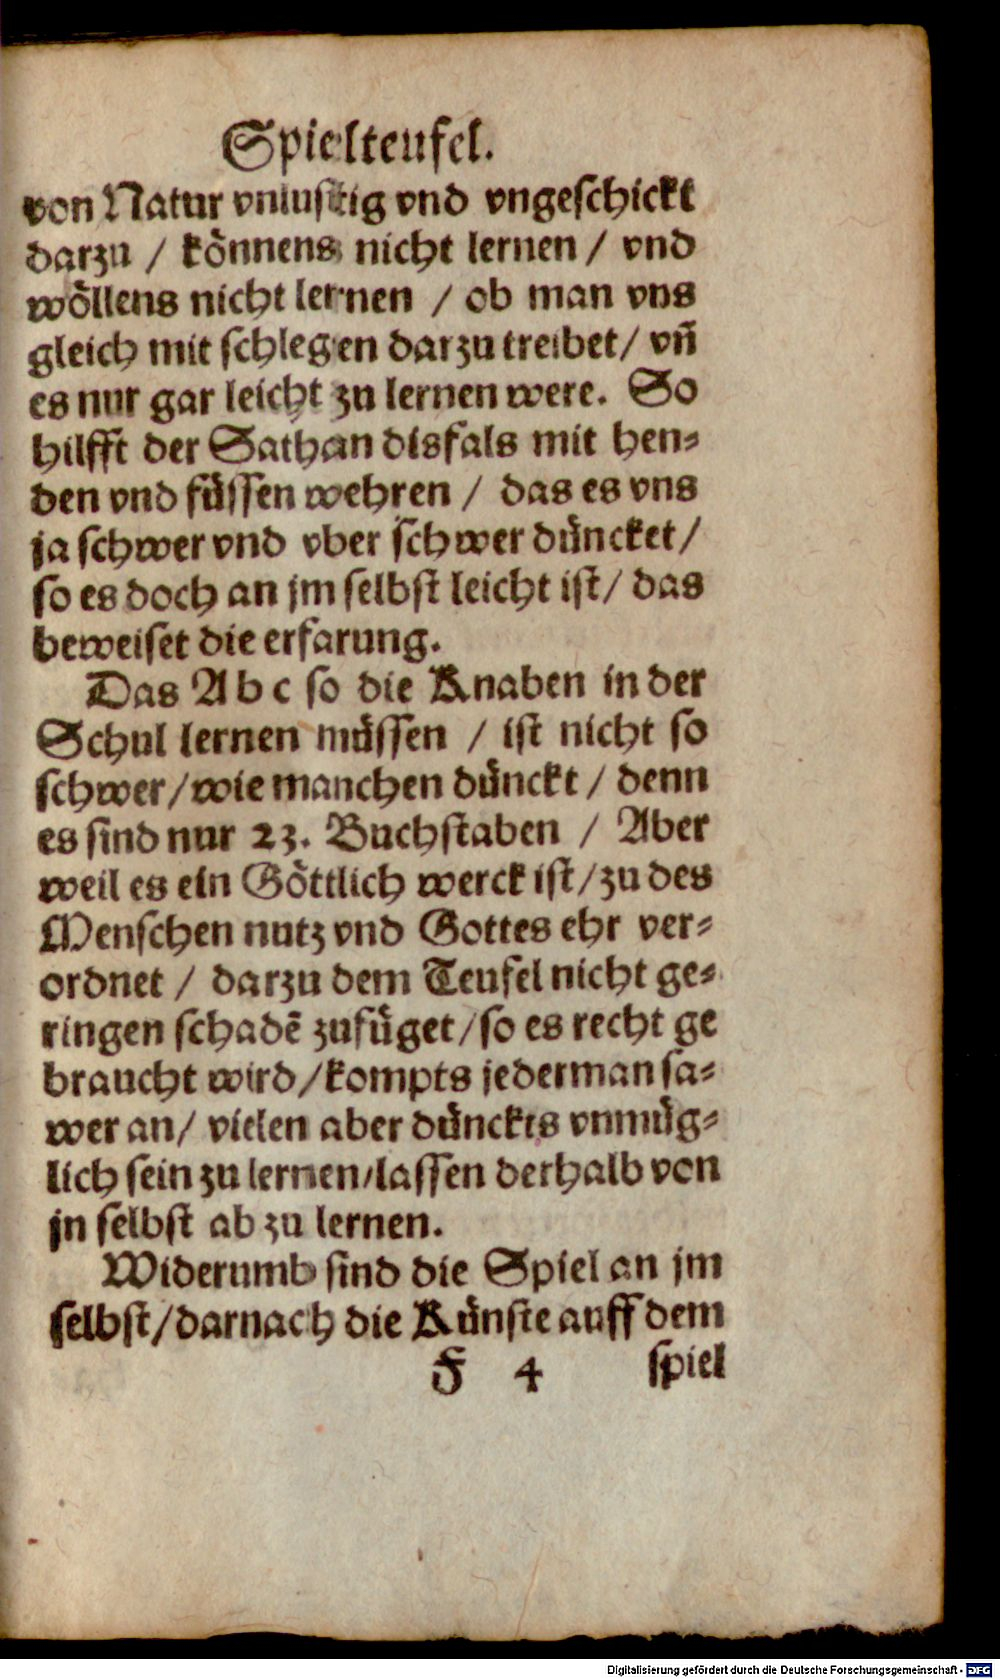 Spielteufel.
von Natur vnlustig vnd vngeschickt
darzu / koͤnnens nicht lernen / vnd
woͤllens nicht lernen / ob man vns
gleich mit schlegen darzu treibet / vn̄
es nur gar leicht zu lernen were. So
hilfft der Sathan disfals mit hen⸗
den vnd fuͤssen wehren / das es vns
ja schwer vnd vber schwer duͤncket /
so es doch an jm selbst leicht ist / das
beweiset die erfarung.
Das A b c so die Knaben in der
Schul lernen muͤssen / ist nicht so
schwer / wie manchen duͤnckt / denn
es sind nur 23. Buchstaben / Aber
weil es ein Goͤttlich werck ist / zu des
Menschen nutz vnd Gottes ehr ver⸗
ordnet / darzu dem Teufel nicht ge⸗
ringen schadē zufuͤget / so es recht ge
braucht wird / kompts jederman sa⸗
wer an / vielen aber duͤnckts vnmuͤg⸗
lich sein zu lernen / lassen derhalb von
jn selbst ab zu lernen.
Widerumb sind die Spiel an jm
selbst / darnach die Kuͤnste auff dem
F 4 spiel
Digitalisierung gefördert durch die Deutsche Forschungsgemeinschaft - DFG